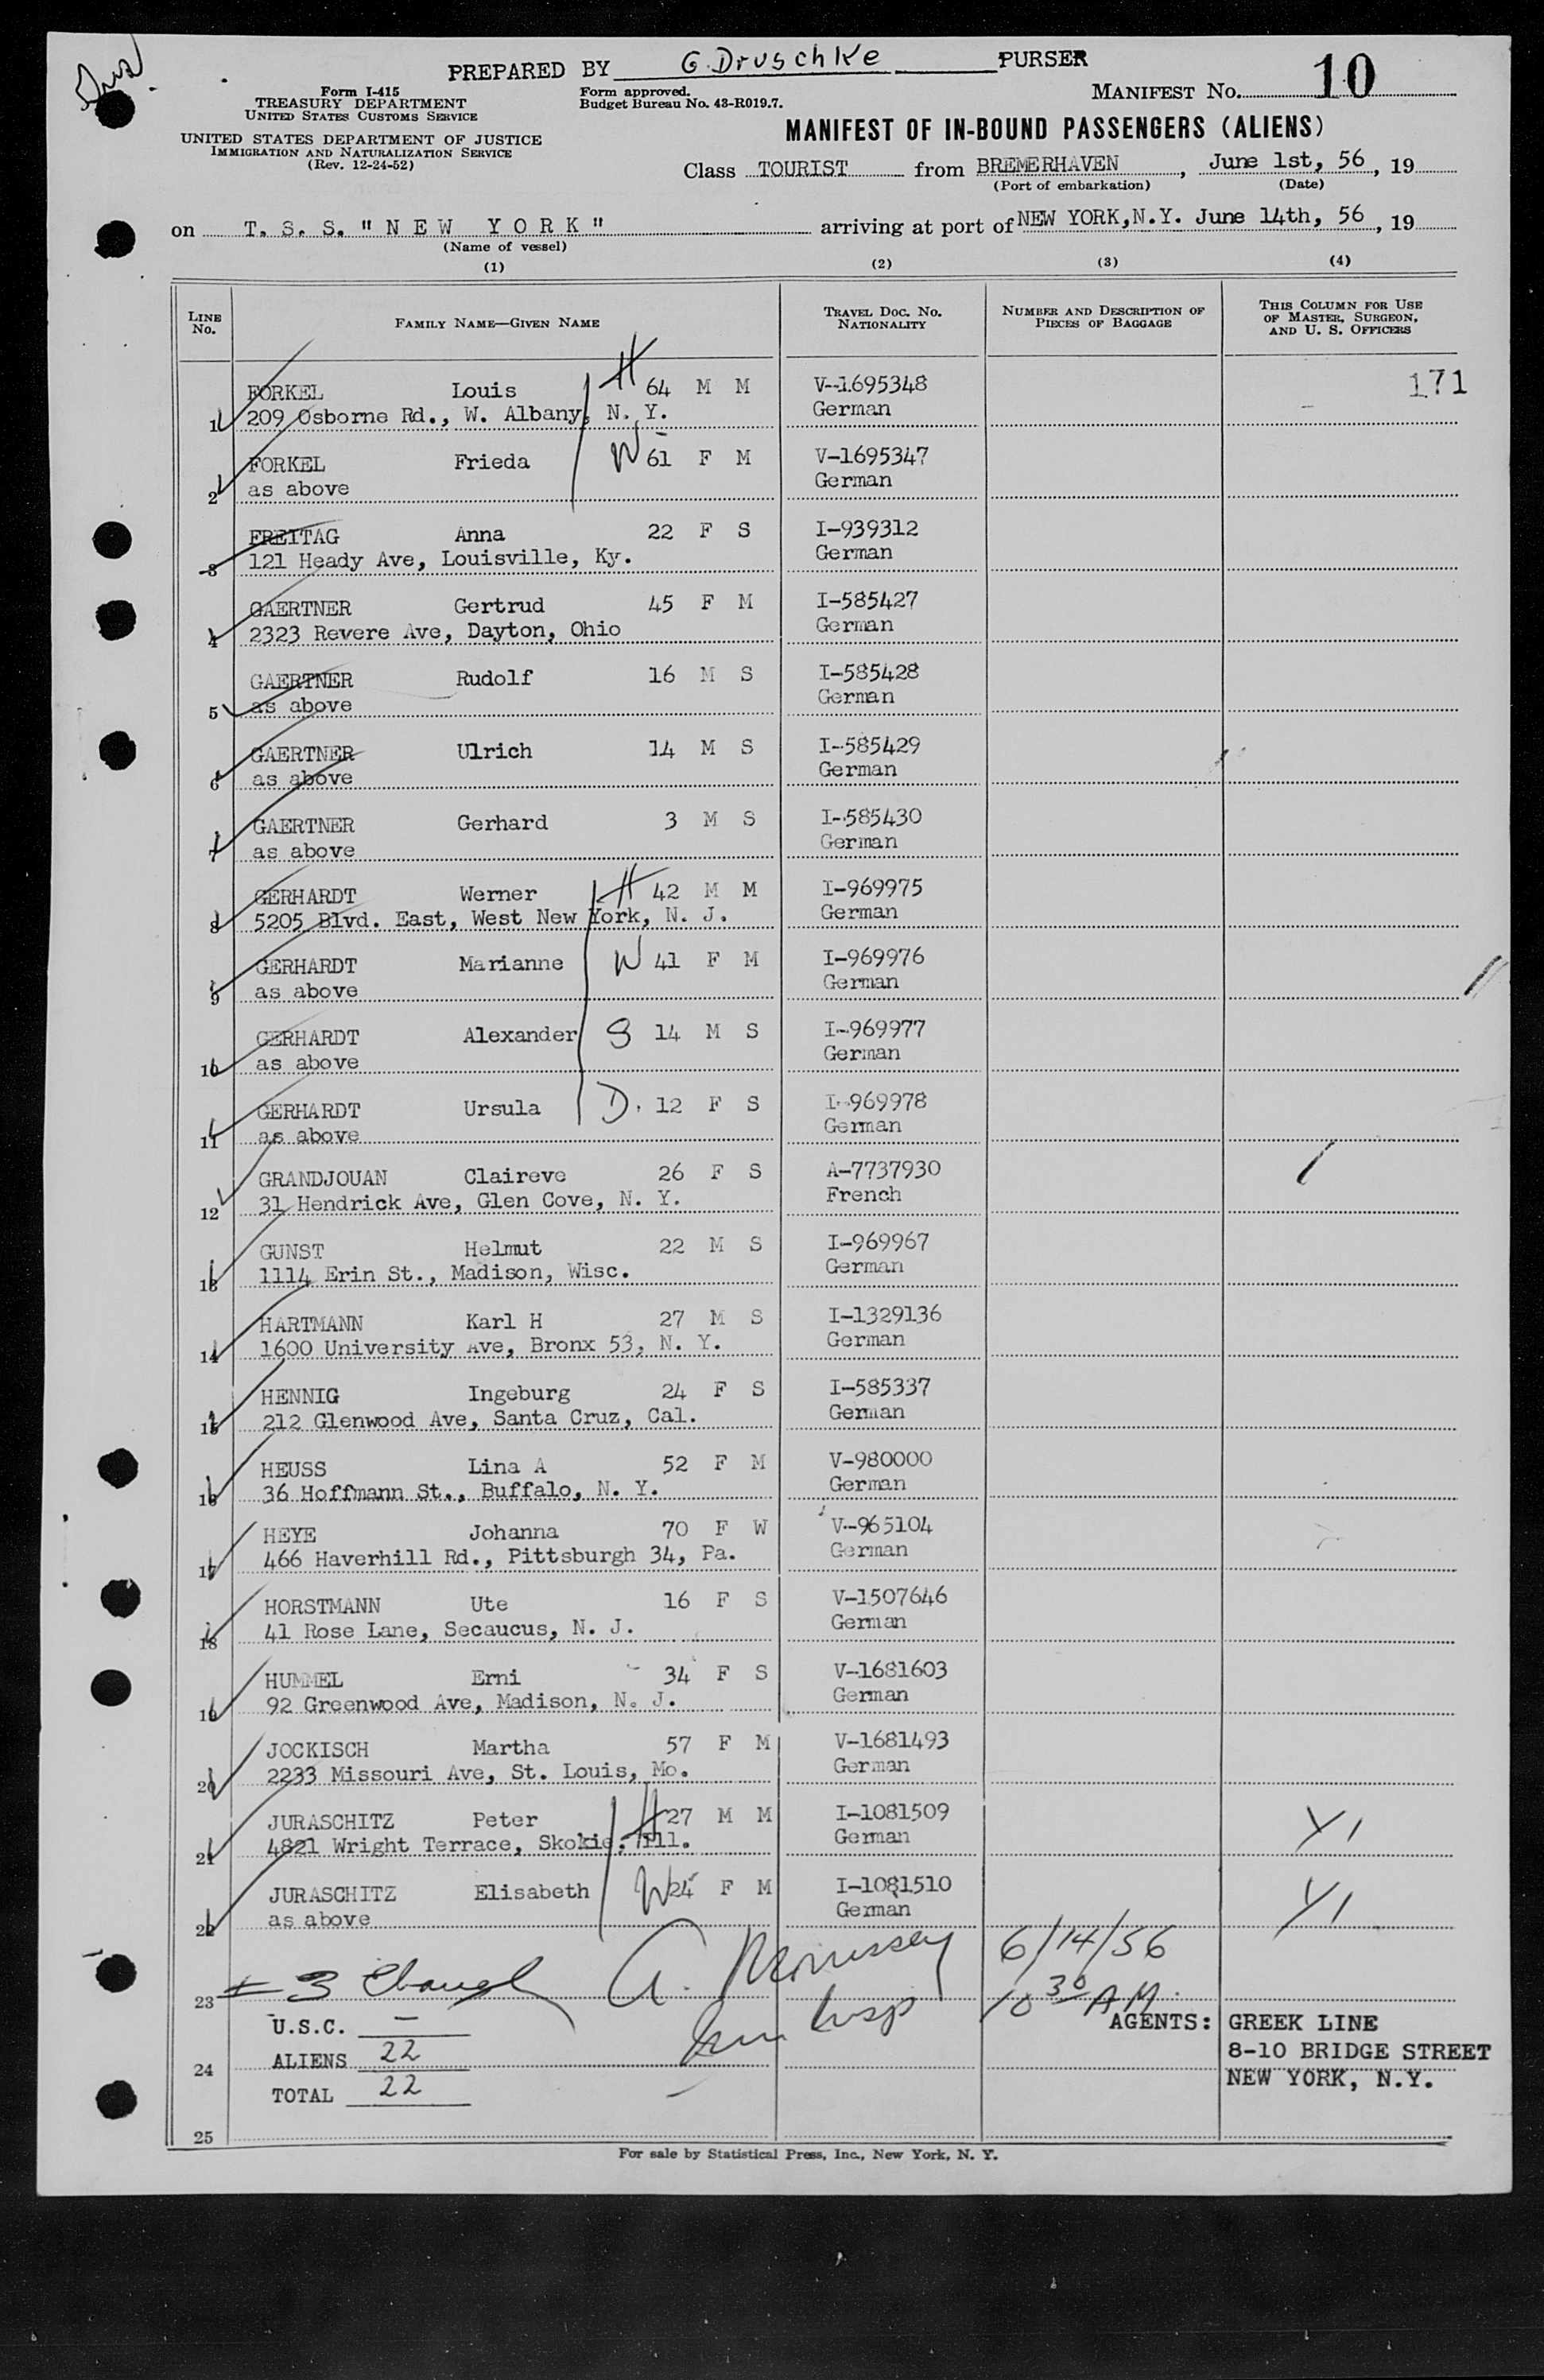 PREPARED BY G. Druschke PURSER
Form I-415
TREASURY DEPARTMENT
UNITED STATES CUSTOMS SERVICE
Form approved.
Budget Bureau No. 43-R019.7.
MANIFEST NO. 10
UNITED STATES DEPARTMENT OF JUSTICE
IMMIGRATION AND NATURALIZATION SERVICE
(Rev. 12-24-52)
MANIFEST OF IN-BOUND PASSENGERS (ALIENS)
Class TOURIST from BREMERHAVEN, June 1st, 56, 19
(Port of embarkation) (Date)
on T. S. S. "NEW YORK" arriving at port of NEW YORK, N.Y. June 14th, 56, 19
(Name of vessel)
(1) (2) (3) (4)
LINE NO. FAMILY NAME—GIVEN NAME TRAVEL DOC. NO. NATIONALITY NUMBER AND DESCRIPTION OF PIECES OF BAGGAGE THIS COLUMN FOR USE OF MASTER, SURGEON, AND U. S. OFFICERS
FORKEL Louis H 64 M M V-1695348 171
1 209 Osborne Rd., W. Albany, N. Y. German
FORKEL Frieda W 61 F M V-1695347
2 as above German
FREITAG Anna 22 F S I-939312
3 121 Heady Ave, Louisville, Ky. German
GAERTNER Gertrud 45 F M I-585427
4 2323 Revere Ave, Dayton, Ohio German
GAERTNER Rudolf 16 M S I-585428
5 as above German
GAERTNER Ulrich 14 M S I-585429
6 as above German
GAERTNER Gerhard 3 M S I-585430
7 as above German
GERHARDT Werner H 42 M M I-969975
8 5205 Blvd. East, West New York, N. J. German
GERHARDT Marianne W 41 F M I-969976
9 as above German
GERHARDT Alexander S 14 M S I-969977
10 as above German
GERHARDT Ursula D. 12 F S I-969978
11 as above German
GRANDJOUAN Claireve 26 F S A-7737930
12 31 Hendrick Ave, Glen Cove, N. Y. French
GUNST Helmut 22 M S I-969967
13 1114 Erin St., Madison, Wisc. German
HARTMANN Karl H 27 M S I-1329136
14 1600 University Ave, Bronx 53, N. Y. German
HENNIG Ingeburg 24 F S I-585337
15 212 Glenwood Ave, Santa Cruz, Cal. German
HEUSS Lina A 52 F M V-980000
16 36 Hoffmann St., Buffalo, N. Y. German
HEYE Johanna 70 F W V-965104
17 466 Haverhill Rd., Pittsburgh 34, Pa. German
HORSTMANN Ute 16 F S V-1507646
18 41 Rose Lane, Secaucus, N. J. German
HUMMEL Erni 34 F S V-1681603
19 92 Greenwood Ave, Madison, N. J. German
JOCKISCH Martha 57 F M V-1681493
20 2233 Missouri Ave, St. Louis, Mo. German
JURASCHITZ Peter H 27 M M I-1081509
21 4821 Wright Terrace, Skokie, Ill. German
JURASCHITZ Elisabeth W 24 F M I-1081510
22 as above German
6/14/56
23 3 10 30 A.M.
U.S.C. — Insp AGENTS: GREEK LINE
24 ALIENS 22 8-10 BRIDGE STREET
TOTAL 22 NEW YORK, N.Y.
25
For sale by Statistical Press, Inc., New York, N. Y.